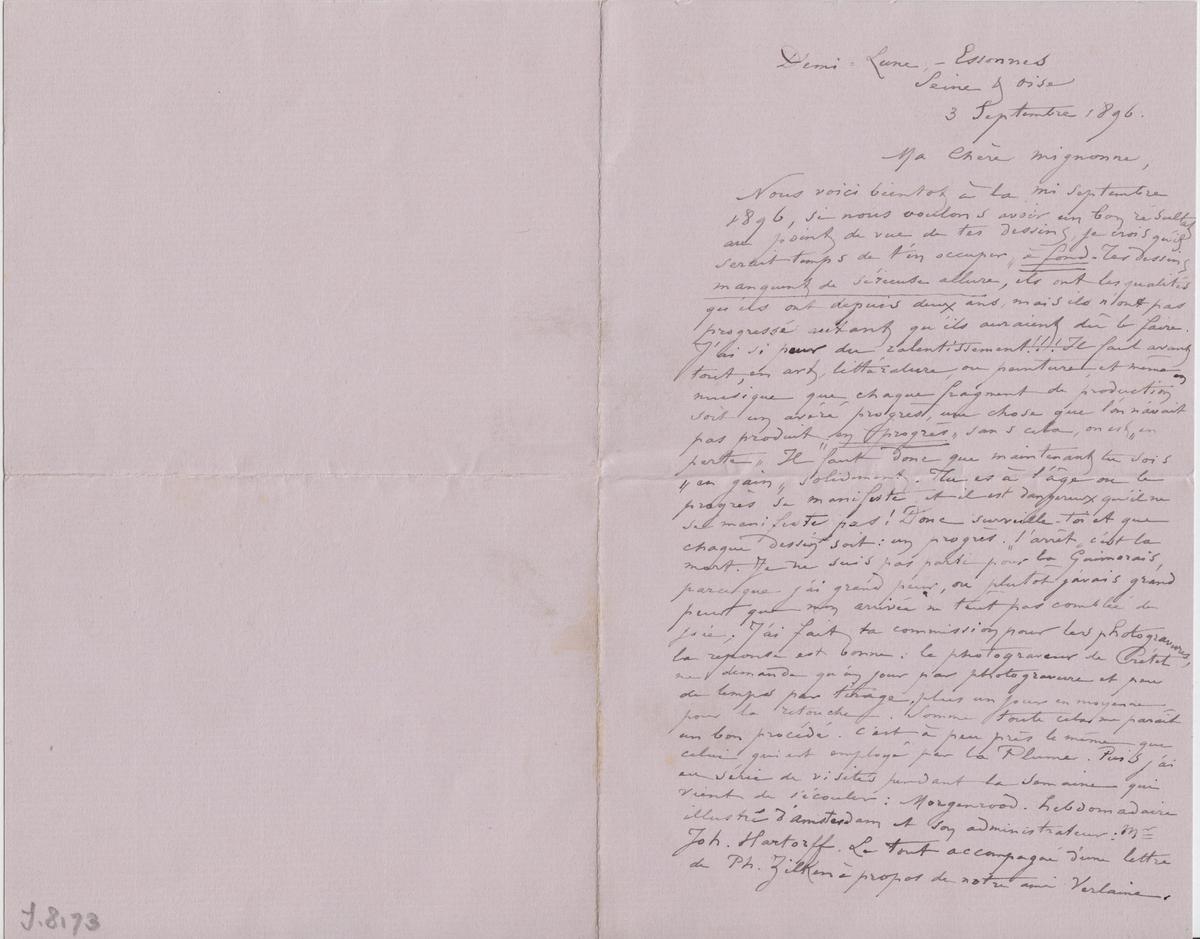 Demi-Lune, - Essonnes
Seine & oise
3 Septembre 1896.
Ma Chère mignonne,
Nous voici bientot à la mi septembre
1896, si nous voulons avoir un bon résultat
au point de vue de tes dessins, je crois qu'il
serait temps de t'en occuper „à fond. Tes dessins
manquent de sérieuse allure, ils ont les qualités
qu'ils ont depuis deux ans, mais ils n'ont pas
progressé autant qu'ils auraient dû le faire.
J'ai si peur du ralentissement!!! Il faut avant
tout, en art, littérature, ou peinture, et même en
musique que chaque fragment de production
soit un avéré progrès, une chose que l'on n'avait
pas produit „en progrès„ sans cela, on est „en
perte„ Il faut donc que maintenant tu sois
„en gain„ solidement. Tu es à l'âge ou le
progrès se manifeste et il est dangereux qu'il ne
se manifeste pas! Donc surveille-toi et que
chaque dessin soit: un progrès. „l'arrêt„ c'est la
mort. Je ne suis pas parti pour la Guimorais,
parceque j'ai grand peur, ou plutôt j'avais grand
peur que mon arrivée ne t'eût pas comblée de
joie. J'ai fait ta commission pour les photogravures,
la réponse est bonne: le photograveur de Crétet
ne demande qu'un jour par photogravure et peu
de temps par tirage, plus un jour en moyenne
pour la retouche. Somme toute cela me paraît
un bon procédé. c'est à peu près le même que
celui qui est employé par la Plume. Puis j'ai
eu série de visites pendant la semaine qui
vient de s'écouler: Morgenrood. hebdomadaire
illustré d'amsterdam et son administrateur: Mr
Joh. Hartorff. Le tout accompagné d'une lettre
de Ph. Zilken à propos de notre ami Verlaine.
J.8.173